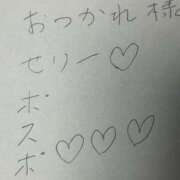 おつかれ様
セリー♡
ポ
ス
ポ♡♡♡